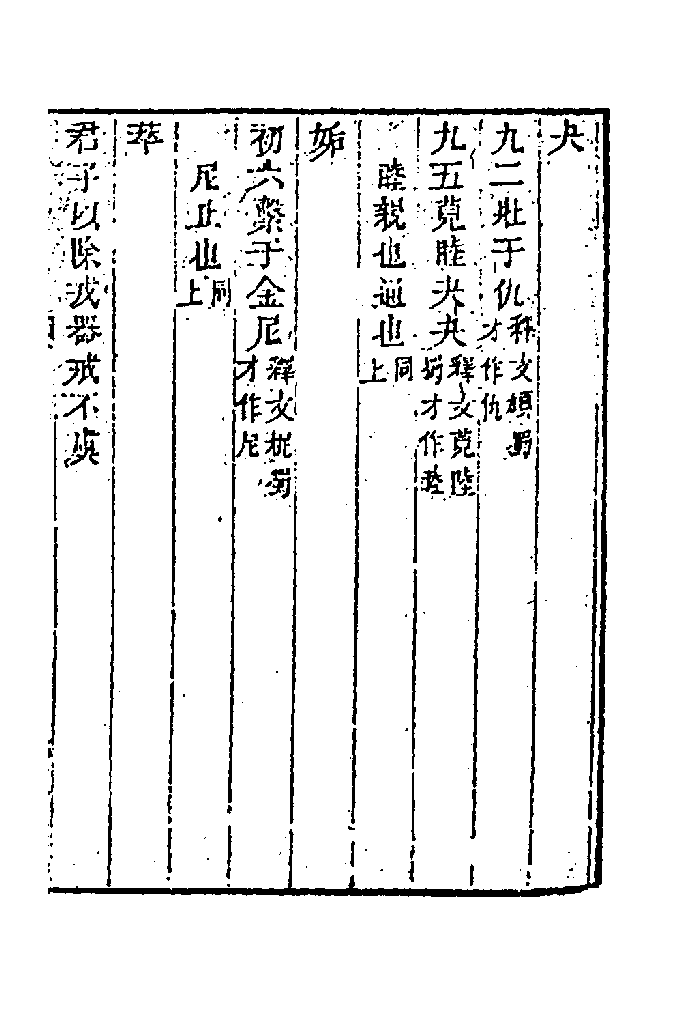 夬
九二壯于仇釋文頄蜀才作仇
九五莧睦夬夬釋文莧陸蜀才作睦
睦親也通也同上
姤
初六繫于金尼釋文柅蜀才作尼
尼止也同上
萃
君子以除戎器戒不虞